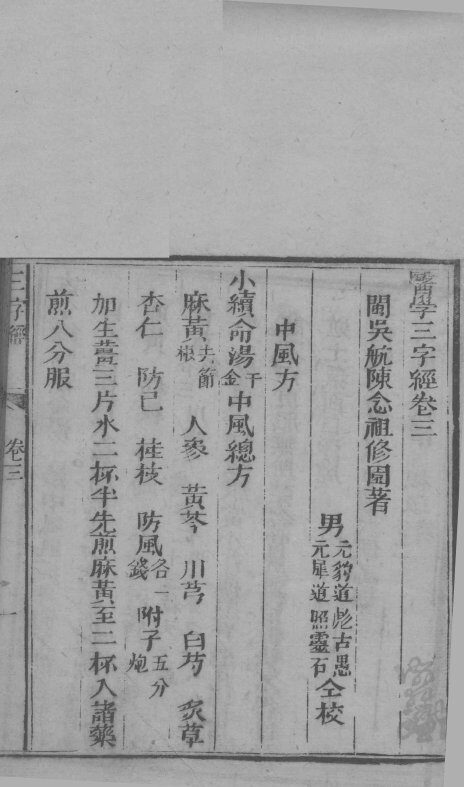 醫學三字經卷三
閩吳航陳念祖修園著
男元豹道彪古愚元犀道照靈石仝校
中風方
小續命湯千金中風總方
麻黃去節根 人參 黃芩 川芎 白芍 炙草
杏仁 防己 桂枝 防風各一錢 附子五分炮
加生薑三片水二杯半先煎麻黃至二杯入諸藥
煎八分服
三字經 卷三 一